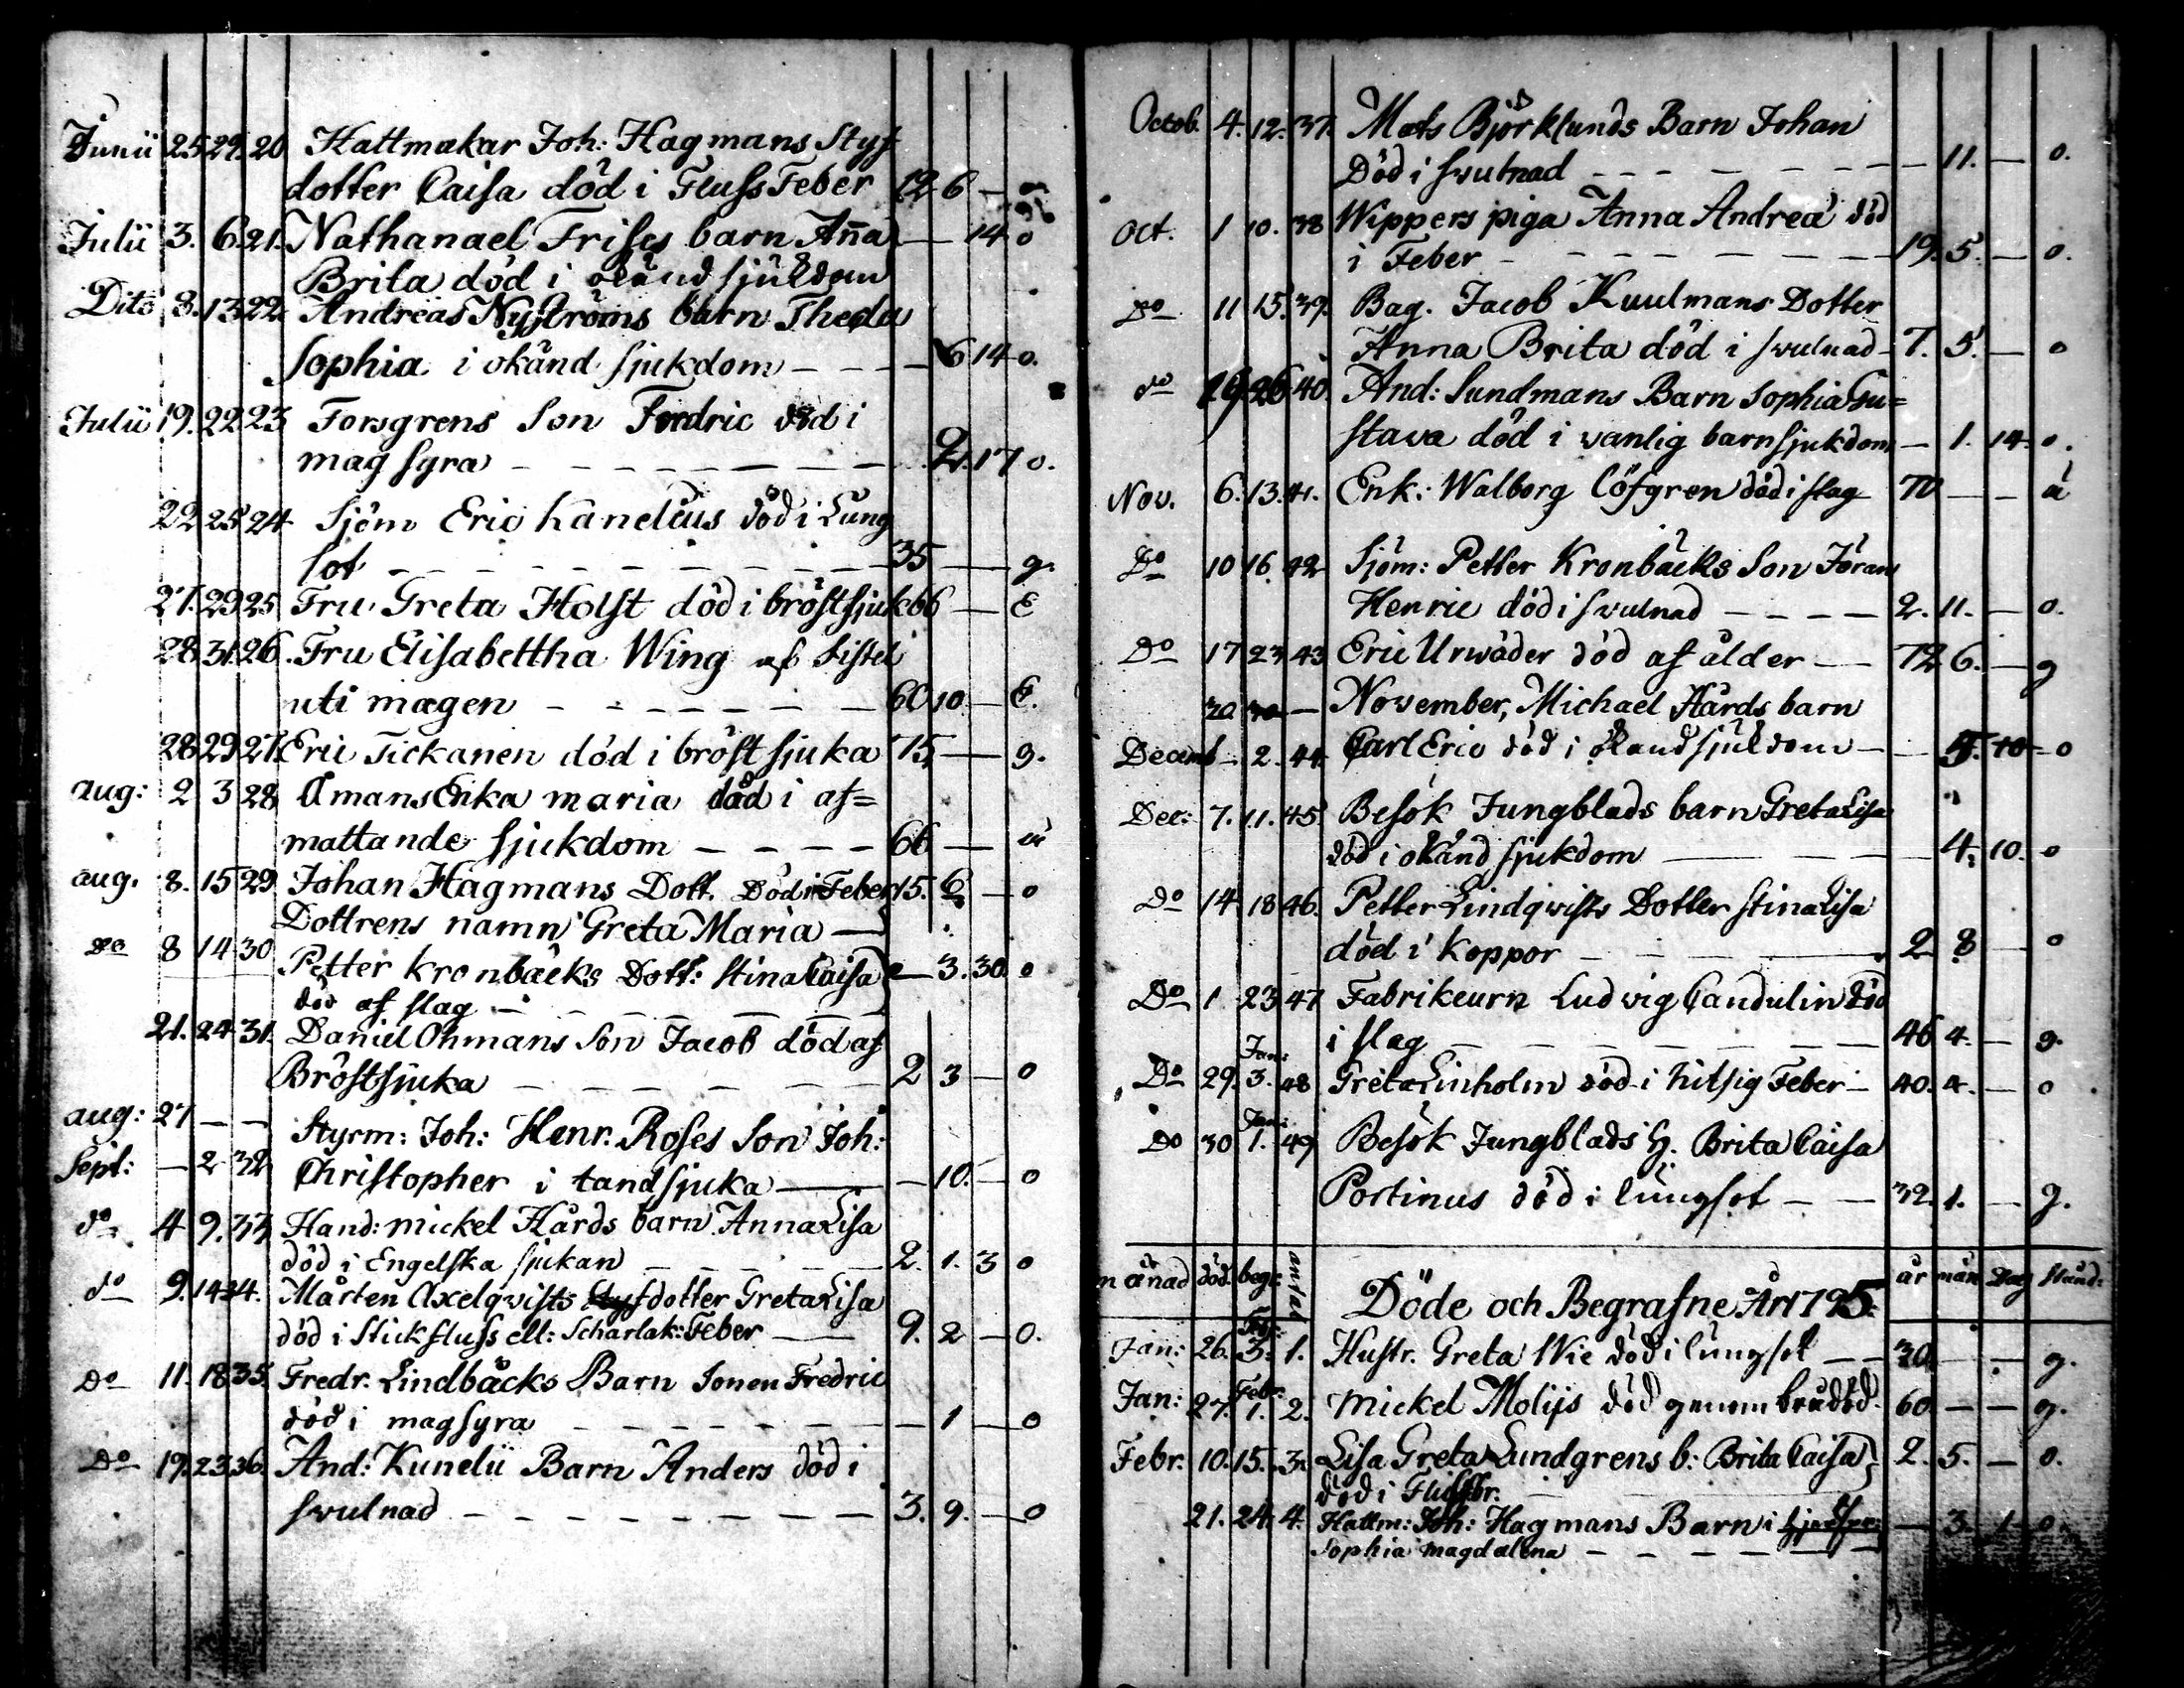 Junii 25 29. 20 Hattmakar Joh: Hagmans Styf
dotter Caisa död i FlussFeber 12 6 —
Julii 3. 6. 21. Nathanael Frises barn Anna — 14 o
Brita död i okänd sjukdom
Dito 8. 13 22 Andreas Nyströms barn Theda
Sophia i okänd sjukdom — — — 6 14 o.
Julii 19. 22 23 Forsgrens Son Fredric död i
mag syra — — — — — — 2. 17 o.
22 25 24 Sjöm Eric Kanelius död i Lung
sot — — — — — — 35 — g.
27. 29 25 Fru Greta Holst död i bröstsjuk 66 — E
28. 31. 26. Fru Elisabettha Wing af Fistel
uti magen — — — — — 60 10 — E.
28 29 27. Eric Tickanen död i bröstsjuka 75 — g.
aug: 2 3 28 Amans Enka maria död i af=
mattande sjukdom — — — — 66 — ä
aug. 8. 15 29 Johan Hagmans Dott. Död i Feber 15. 6 — o
Dottrens namn Greta Maria —
Do 8 14 30 Petter Kronbäcks Dott: Stina Caisa — 3. 30. o
död af slag — — — — —
21. 24 31. Daniel Öhmans Son Jacob död af
Bröstsjuka — — — — — 2 3 — o
aug: 27 — — Styrm: Joh: Henr. Roses Son Joh:
Sept: — 2 32 Christopher i tandsjuka — — 10. — o
do 4 9. 33 Hand: mickel Hårds barn Anna Lisa
död i Engelska sjukan — — — — 2. 1. 3 o
do 9. 14 34. Mårten Axelqvists Styfdotter Greta Lisa
död i Stickfluss ell: Scharlak: Feber — 9. 2 — o.
Do 11. 18 35 Fredr. Lindbäcks Barn Sonen Fredric
död i magsyra — — — — — 1 — o
Do 19. 23 36. And: Kunelii Barn Anders död i
svulnad — — — — — — 3. 9. — o
Octob. 4. 12. 37. Mats Björklunds Barn Johan
Död i svulnad — — — — — 11. — o.
Oct. 1 10. 38 Wippers piga Anna Andrea död
i Feber — — — — — — 19. 5. — o.
Do 11 15. 39. Bag. Jacob Kuulmans Dotter
Anna Brita död i svulnad — 7. 5. — o
do 19 26 40. And: Sundmans Barn Sophia Gu=
stava död i vanlig barnsjukdom — 1. 14. o.
Nov. 6. 13. 41. Enk: Walborg Löfgren död i slag 70 — — ä
Do 10 16. 42 Sjöm: Petter Kronbäcks Son Jöran
Henric död i svulnad — — — 2. 11. — o.
Do 17 23 43 Eric Urwäder död af ålder — 72 6. — g
30 30 — November, Michael Hårds barn
Decemb — 2. 44. Carl Eric död i okand sjukdom — 5. 10 — o
Dec: 7. 11. 45 Besök Jungblads barn Greta Lisa
död i okänd sjukdom — — 4. 10. o
Do 14. 18 46. Petter Lindqvists Dotter Stina Lisa
död i koppor — — — 2 8 — o
Do 1 23 47 Fabrikeurn Ludvig Candulin död
i slag — — — — — — 46 4. — g.
Do 29. Jan: 3. 48 Greta Linholm död i hitsig Feber — 40. 4. — o
Do 30 Jan: 1. 49 Besök Jungblads H. Brita Caisa
Portinus död i lungsot — — 32. 1. — g.
månad död. begr: antal år mån Dag stånd:
Döde och Begrafne År 1795.
Jan: 26. Feb: 3. 1. Hustr. Greta Wic död i lungsot — — 30 — g.
Jan: 27. Febr. 1. 2. Mickel Molijs död genom brådöd. 60 — — g.
Febr. 10. 15. 3. Lisa Greta Lundgrens b: Brita Caisa 2. 5. — o.
död i
21. 24. 4. Hattm: Joh: Hagmans Barn i — 3. 1 o
Sophia magdalena — — — — —